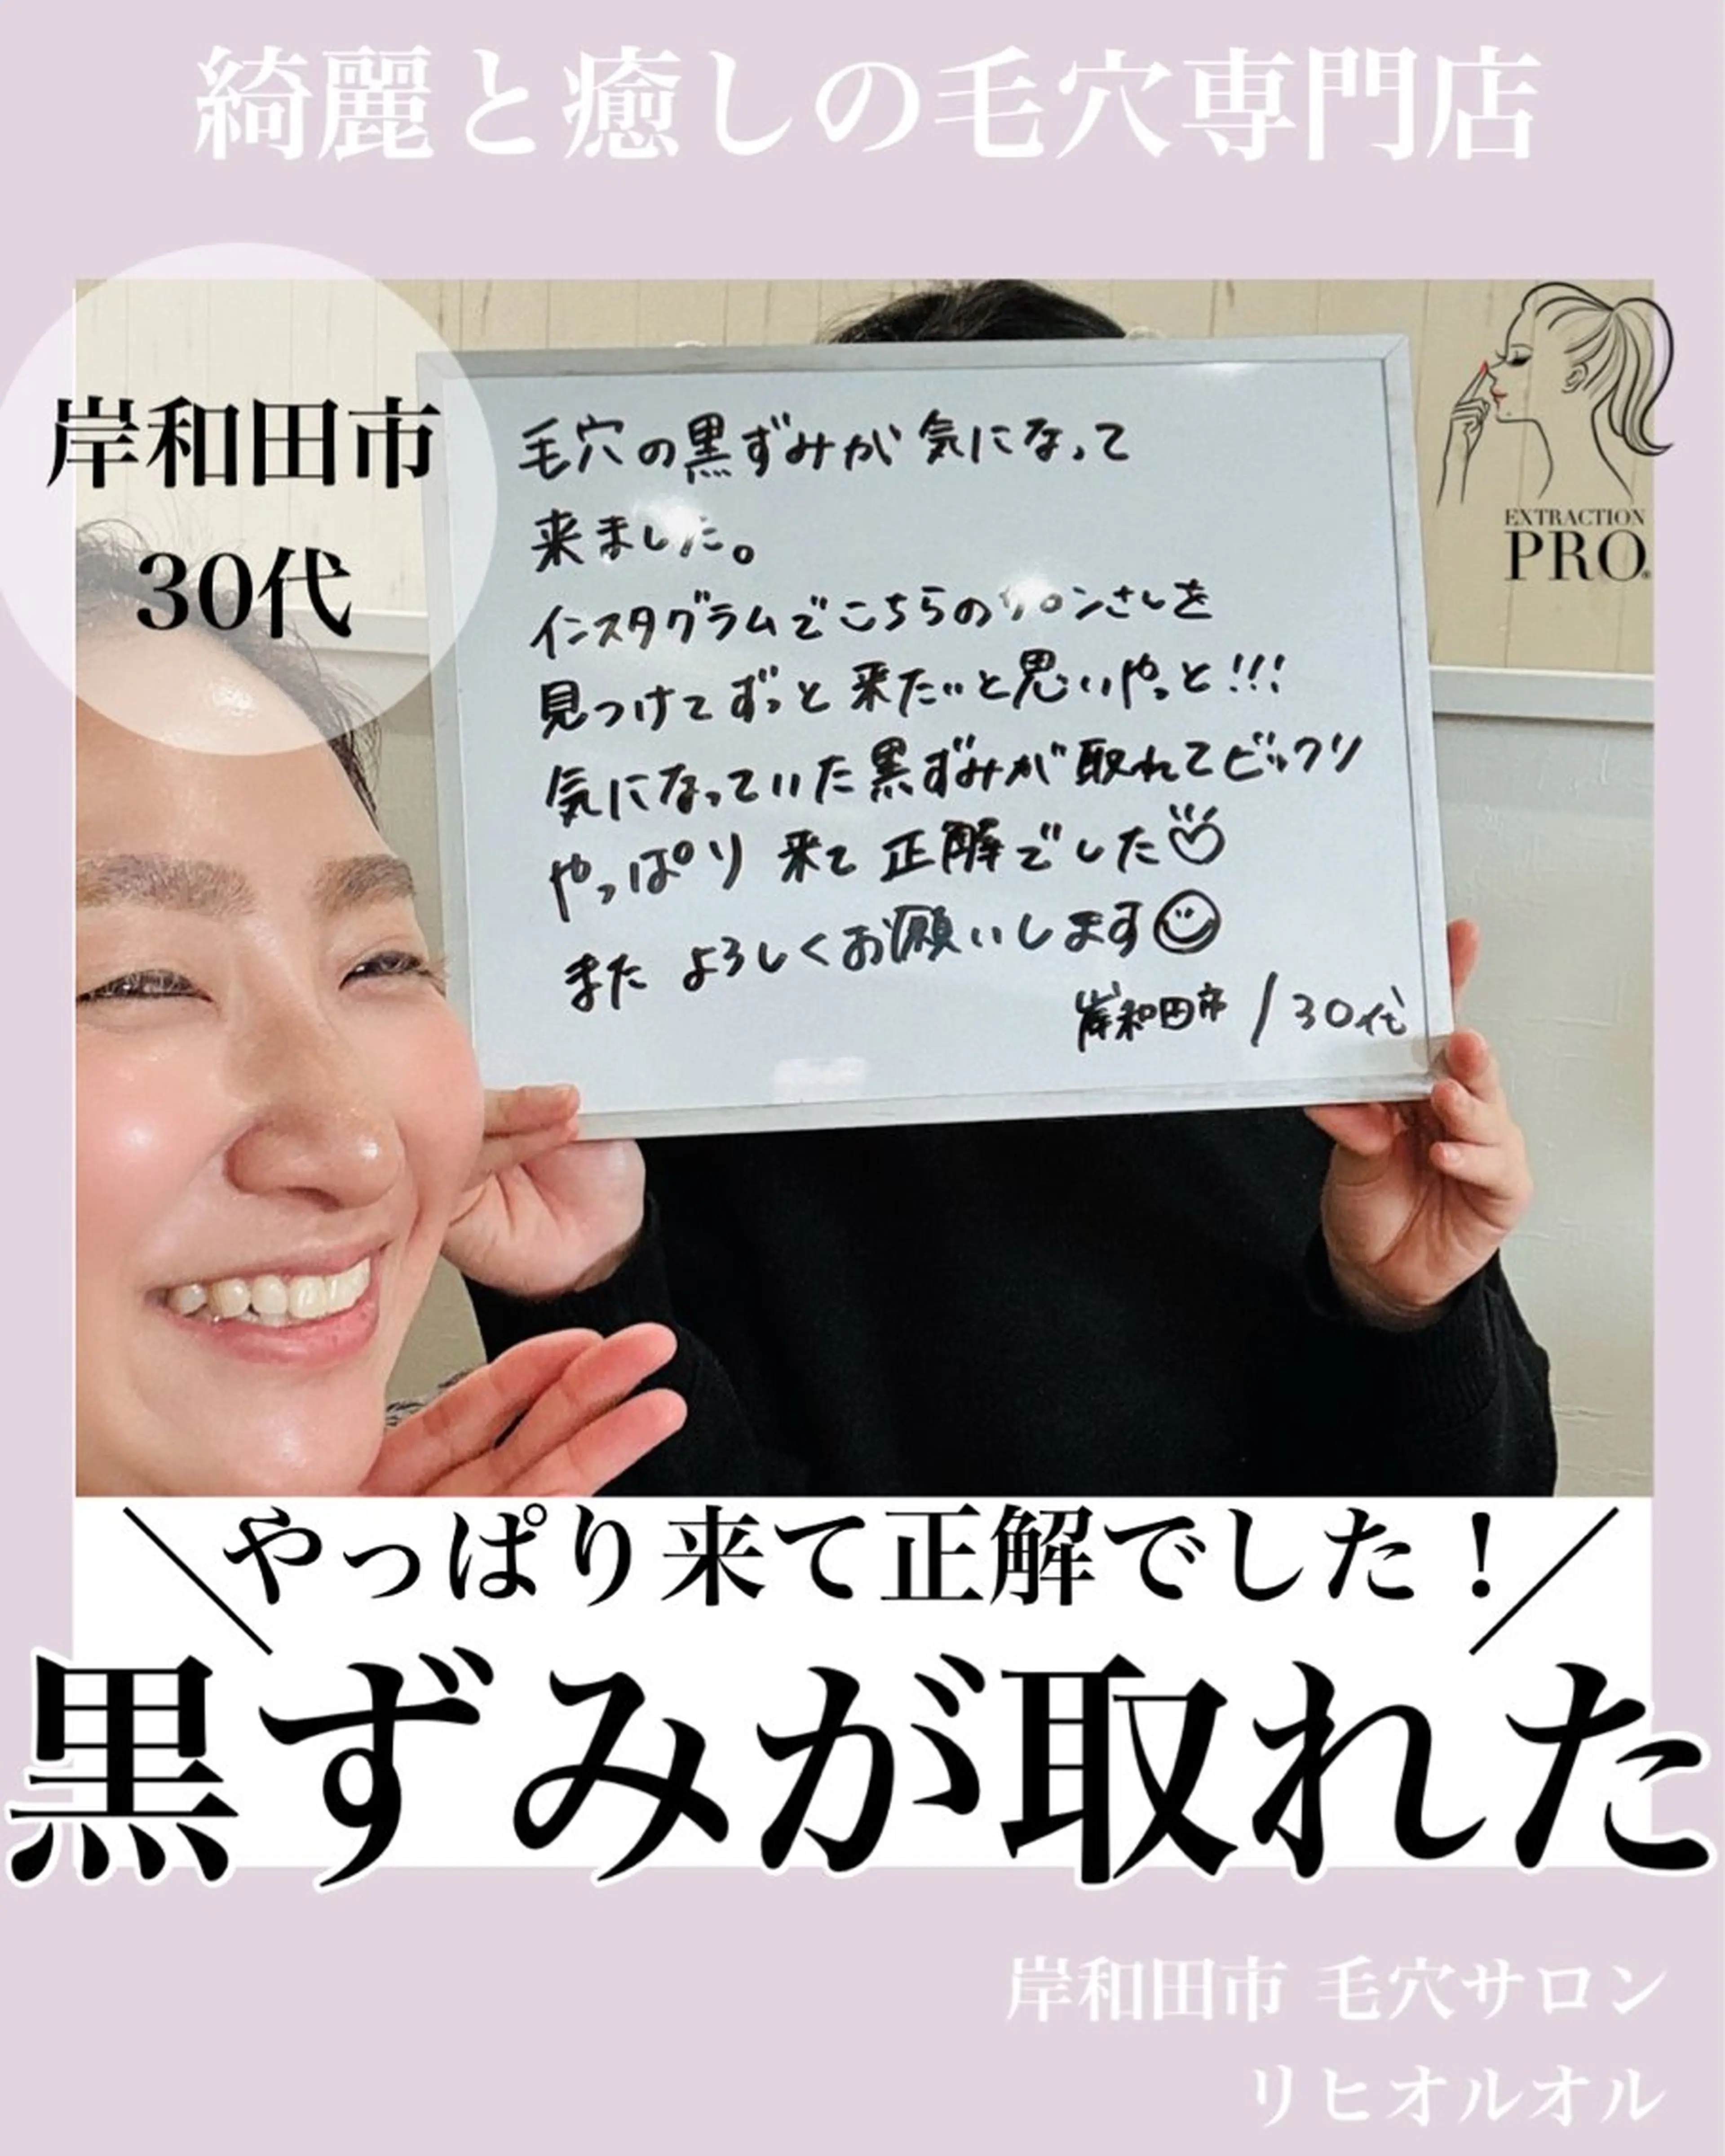 綺麗と癒しの毛穴専門店
岸和田市
30代
EXTRACTION
PRO
毛穴の黒ずみが気になって
来ました。
インスタグラムでこちらのサロンさんを
見つけてずっと来たいと思いやっと!!!
気になっていた黒ずみが取れてビックリ
やっぱり来て正解でした
またよろしくお願いします
岸和田市/30代
やっぱり来て正解でした！
黒ずみが取れた
岸和田市 毛穴サロン
リヒオルオル